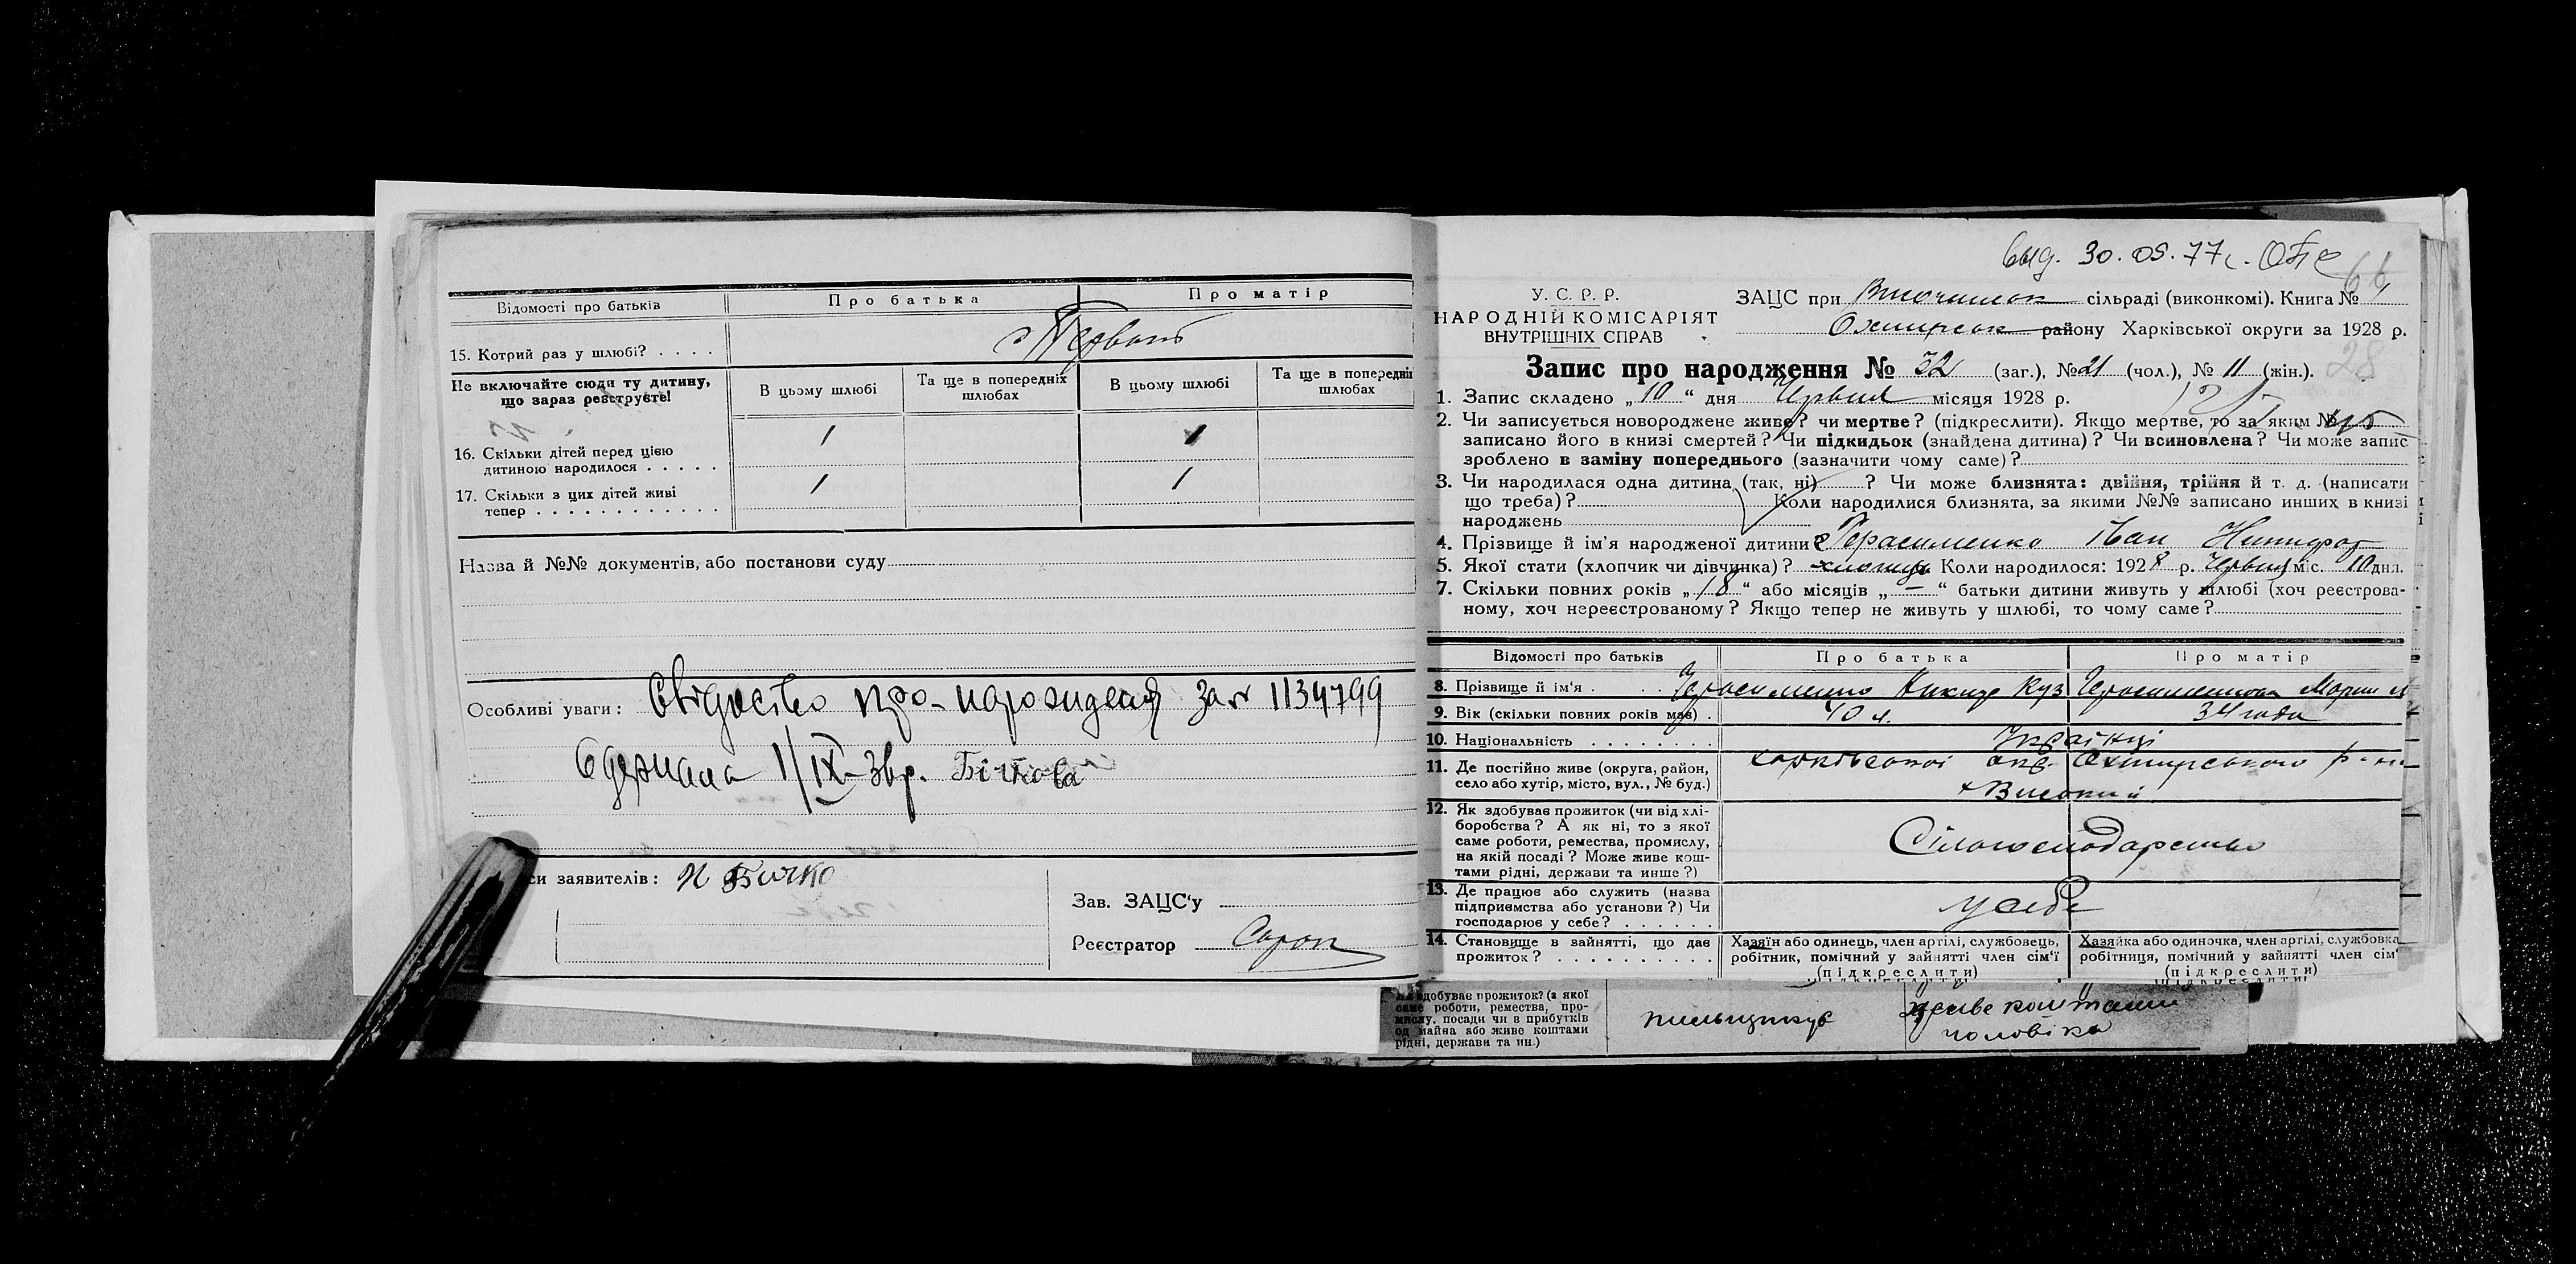 Відомості про батьків
Про батька
Про матір
15. Котрий раз у шлюбі? . . . .
Не включайте сюди ту дитину,
що зараз реєструєте!
В цьому шлюбі
Та ще в попередніх
шлюбах
В цьому шлюбі
Та ще в попередніх
шлюбах
16. Скільки дітей перед цією
дитиною народилося . . . . .
1
1
17. Скільки з цих дітей живі
тепер . . . . . . . . . . . .
1
1
Назва й №№ документів, або постанови суду
Особливі уваги:
про народження за № 1134799
Одержала 1/IX
заявителів: Бичко
Зав. ЗАЦС'у
Реєстратор
30.05.77
У. С. Р. Р.
НАРОДНІЙ КОМІСАРІЯТ
ВНУТРІШНІХ СПРАВ
ЗАЦС при сільраді (виконкомі). Книга № 1
району Харківської округи за 1928 р.
Запис про народження № 32 (заг.), № 21 (чол.), № 11 (жін.).
28
1. Запис складено „ 10 “ дня Червня місяця 1928 р.
2. Чи записується новороджене живе? чи мертве? (підкреслити). Якщо мертве, то за яким №
записано його в книзі смертей? Чи підкидьок (знайдена дитина)? Чи всиновлена? Чи може запис
зроблено в заміну попереднього (зазначити чому саме)?
3. Чи народилася одна дитина (так, ні) ? Чи може близнята: двійня, трійня й т. д. (написати
що треба)? Коли народилися близнята, за якими №№ записано инших в книзі
народжень
4. Прізвище й ім'я народженої дитини Герасименко Іван
5. Якої стати (хлопчик чи дівчинка)? хлопець Коли народилося: 1928 р. Червня міс. 10 дня.
7. Скільки повних років „ 18 “ або місяців „ — “ батьки дитини живуть у шлюбі (хоч реєстрова-
ному, хоч нереєстрованому? Якщо тепер не живуть у шлюбі, то чому саме?
Відомості про батьків
Про батька
Про матір
8. Прізвище й ім'я . . . . Герасименко Куз
9. Вік (скільки повних років має) .
34 года
10. Національність . . . . . . . .
Українці
11. Де постійно живе (округа, район,
село або хутір, місто, вул., № буд.)
Харківської окр. Охтирського р-ну
х Високий
12. Як здобуває прожиток (чи від хлі-
боробства? А як ні, то з якої
саме роботи, ремества, промислу,
на якій посаді? Може живе кош-
тами рідні, держави та инше?)
Сільгосподарство
13. Де працює або служить (назва
підприємства або установи?) Чи
господарює у себе? . . . . . .
у себе
14. Становище в зайнятті, що дає
прожиток? . . . . . . . . . .
Хазяїн або одинець, член артілі, службовець,
робітник, помічний у зайнятті член сім'ї
(підкреслити)
Хазяйка або одиночка, член артілі, службовка
робітниця, помічний у зайнятті член сім'
(підкреслити)
здобуває прожиток? (з якої
саме роботи, ремества, про-
мислу, посади чи з прибутків
од майна або живе коштами
рідні, держави та ин.)
живе коштами
чоловіка